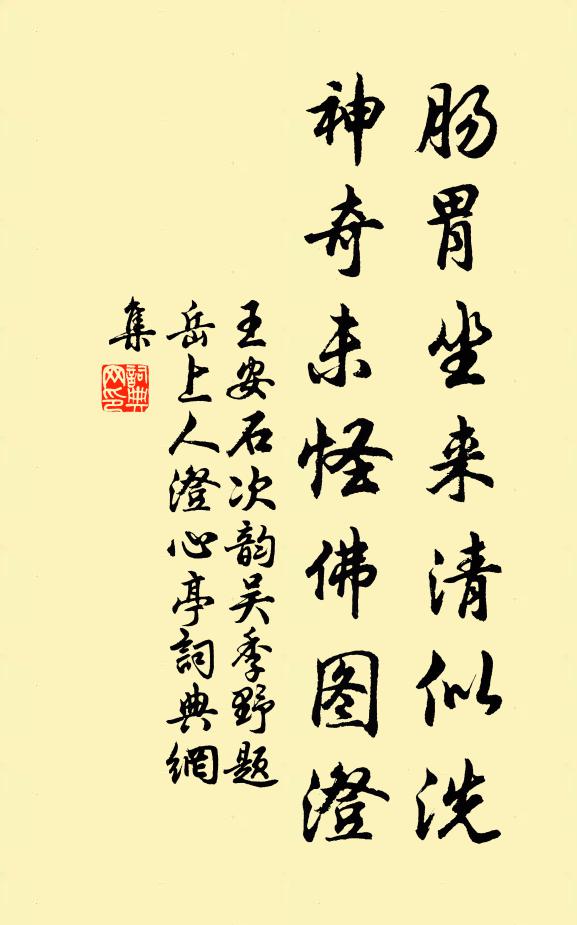 肠胃坐来清似洗
神奇未怪佛图澄
王安石次韵吴季野题
岳上人澄心亭詞典網
集
詞典
网印